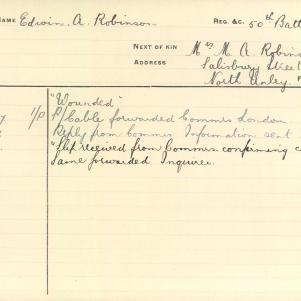 NAME Edwin. A. Robinson REG. &C. 50th Batt
NEXT OF KIN Mrs M. A. Robins
ADDRESS Salisbury Street
North Unley.
"Wounded"
1/p P/Cable forwarded Commrs London.
Reply from Commrs Information sent
"Slip received from Commrs. confirming c
Same forwarded Inquirer.